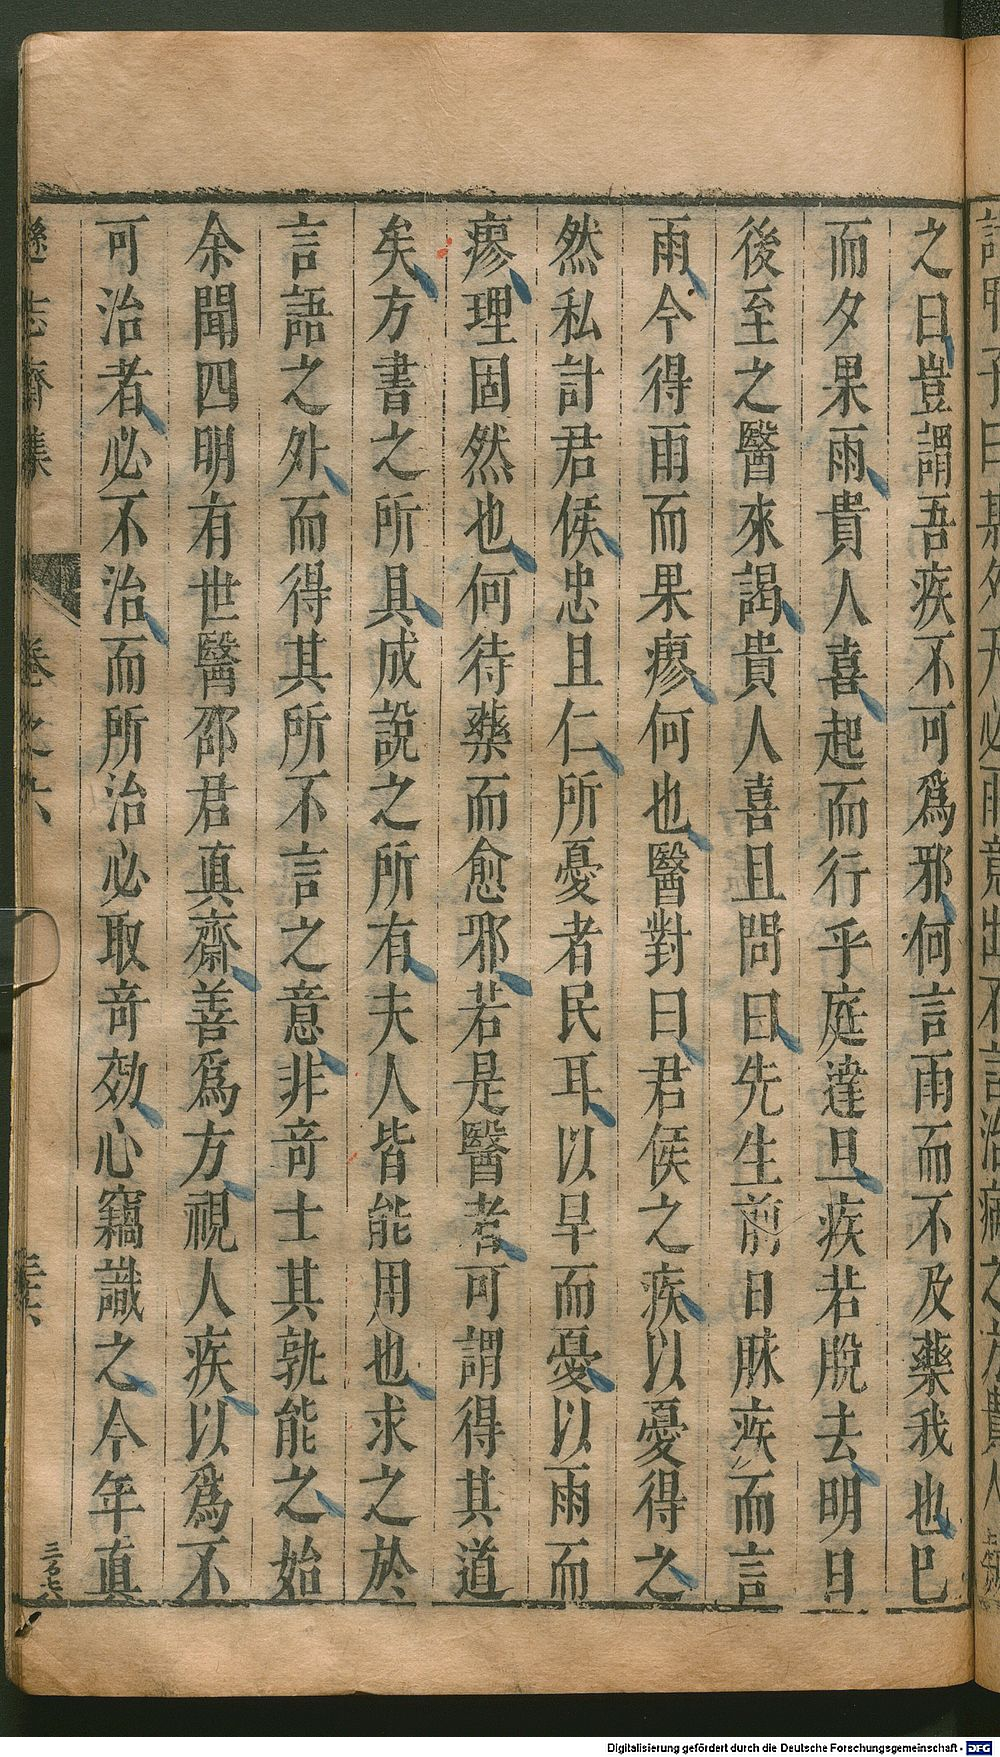 之曰豈謂吾疾不可爲邪何言雨而不及藥我也巳
而夕果雨貴人喜起而行乎庭達旦疾若脫去明日
後至之醫來謁貴人喜且問曰先生前日脉疾而言
雨今得雨而果瘳何也醫對曰君侯之疾以憂得之
然私計君侯忠且仁所憂者民耳以旱而憂以雨而
瘳理固然也何待藥而愈邪若是醫者可謂得其道
矣方書之所具成說之所有夫人皆能用也求之於
言語之外而得其所不言之意非竒士其孰能之始
余聞四明有世醫邵君真齋善爲方視人疾以爲不
可治者必不治而所治必取竒効心竊識之今年真
遜志齋集
卷之六
Digitalisierung gefördert durch die Deutsche Forschungsgemeinschaft - DFG